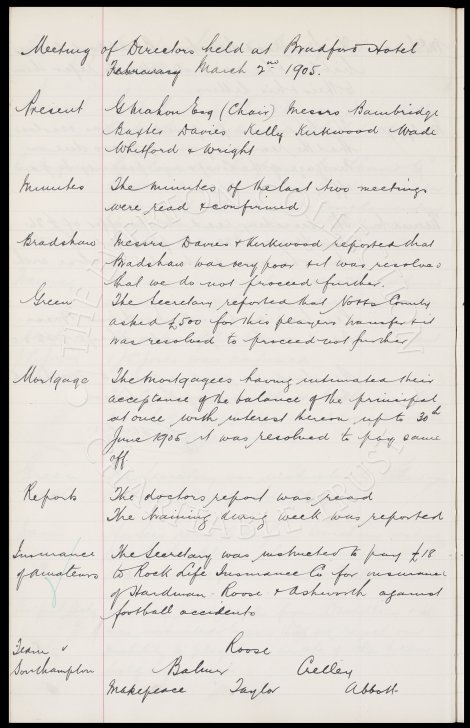 Meeting of Directors held at Bradford Hotel
February March 2nd 1905.
Present G Mahon Esq (Chair) Messrs Bainbridge
Baxter Davies Kelly Kirkwood Wade
Whitford & Wright
Minutes The minutes of the last two meetings
were read & confirmed
Bradshaw Messrs Davies & Kirkwood reported that
Bradshaw was very poor & it was resolved
that we do not proceed further.
Green The Secretary reported that Notts County
asked £500 for this players transfer & it
was resolved to proceed no further
Mortgage The Mortgagees having intimated their
acceptance of the balance of the principal
at once with interest thereon up to 30th
June 1905 it was resolved to pay same
off
Reports The doctors report was read
The training during week was reported
Insurance of Amateurs The Secretary was instructed to pay £18
to Rock Life Insurance Co for insurance
of Hardman Roose & Ashworth against
football accidents
Team v Roose
Southampton Balmer Crelley
Makepeace Taylor Abbott